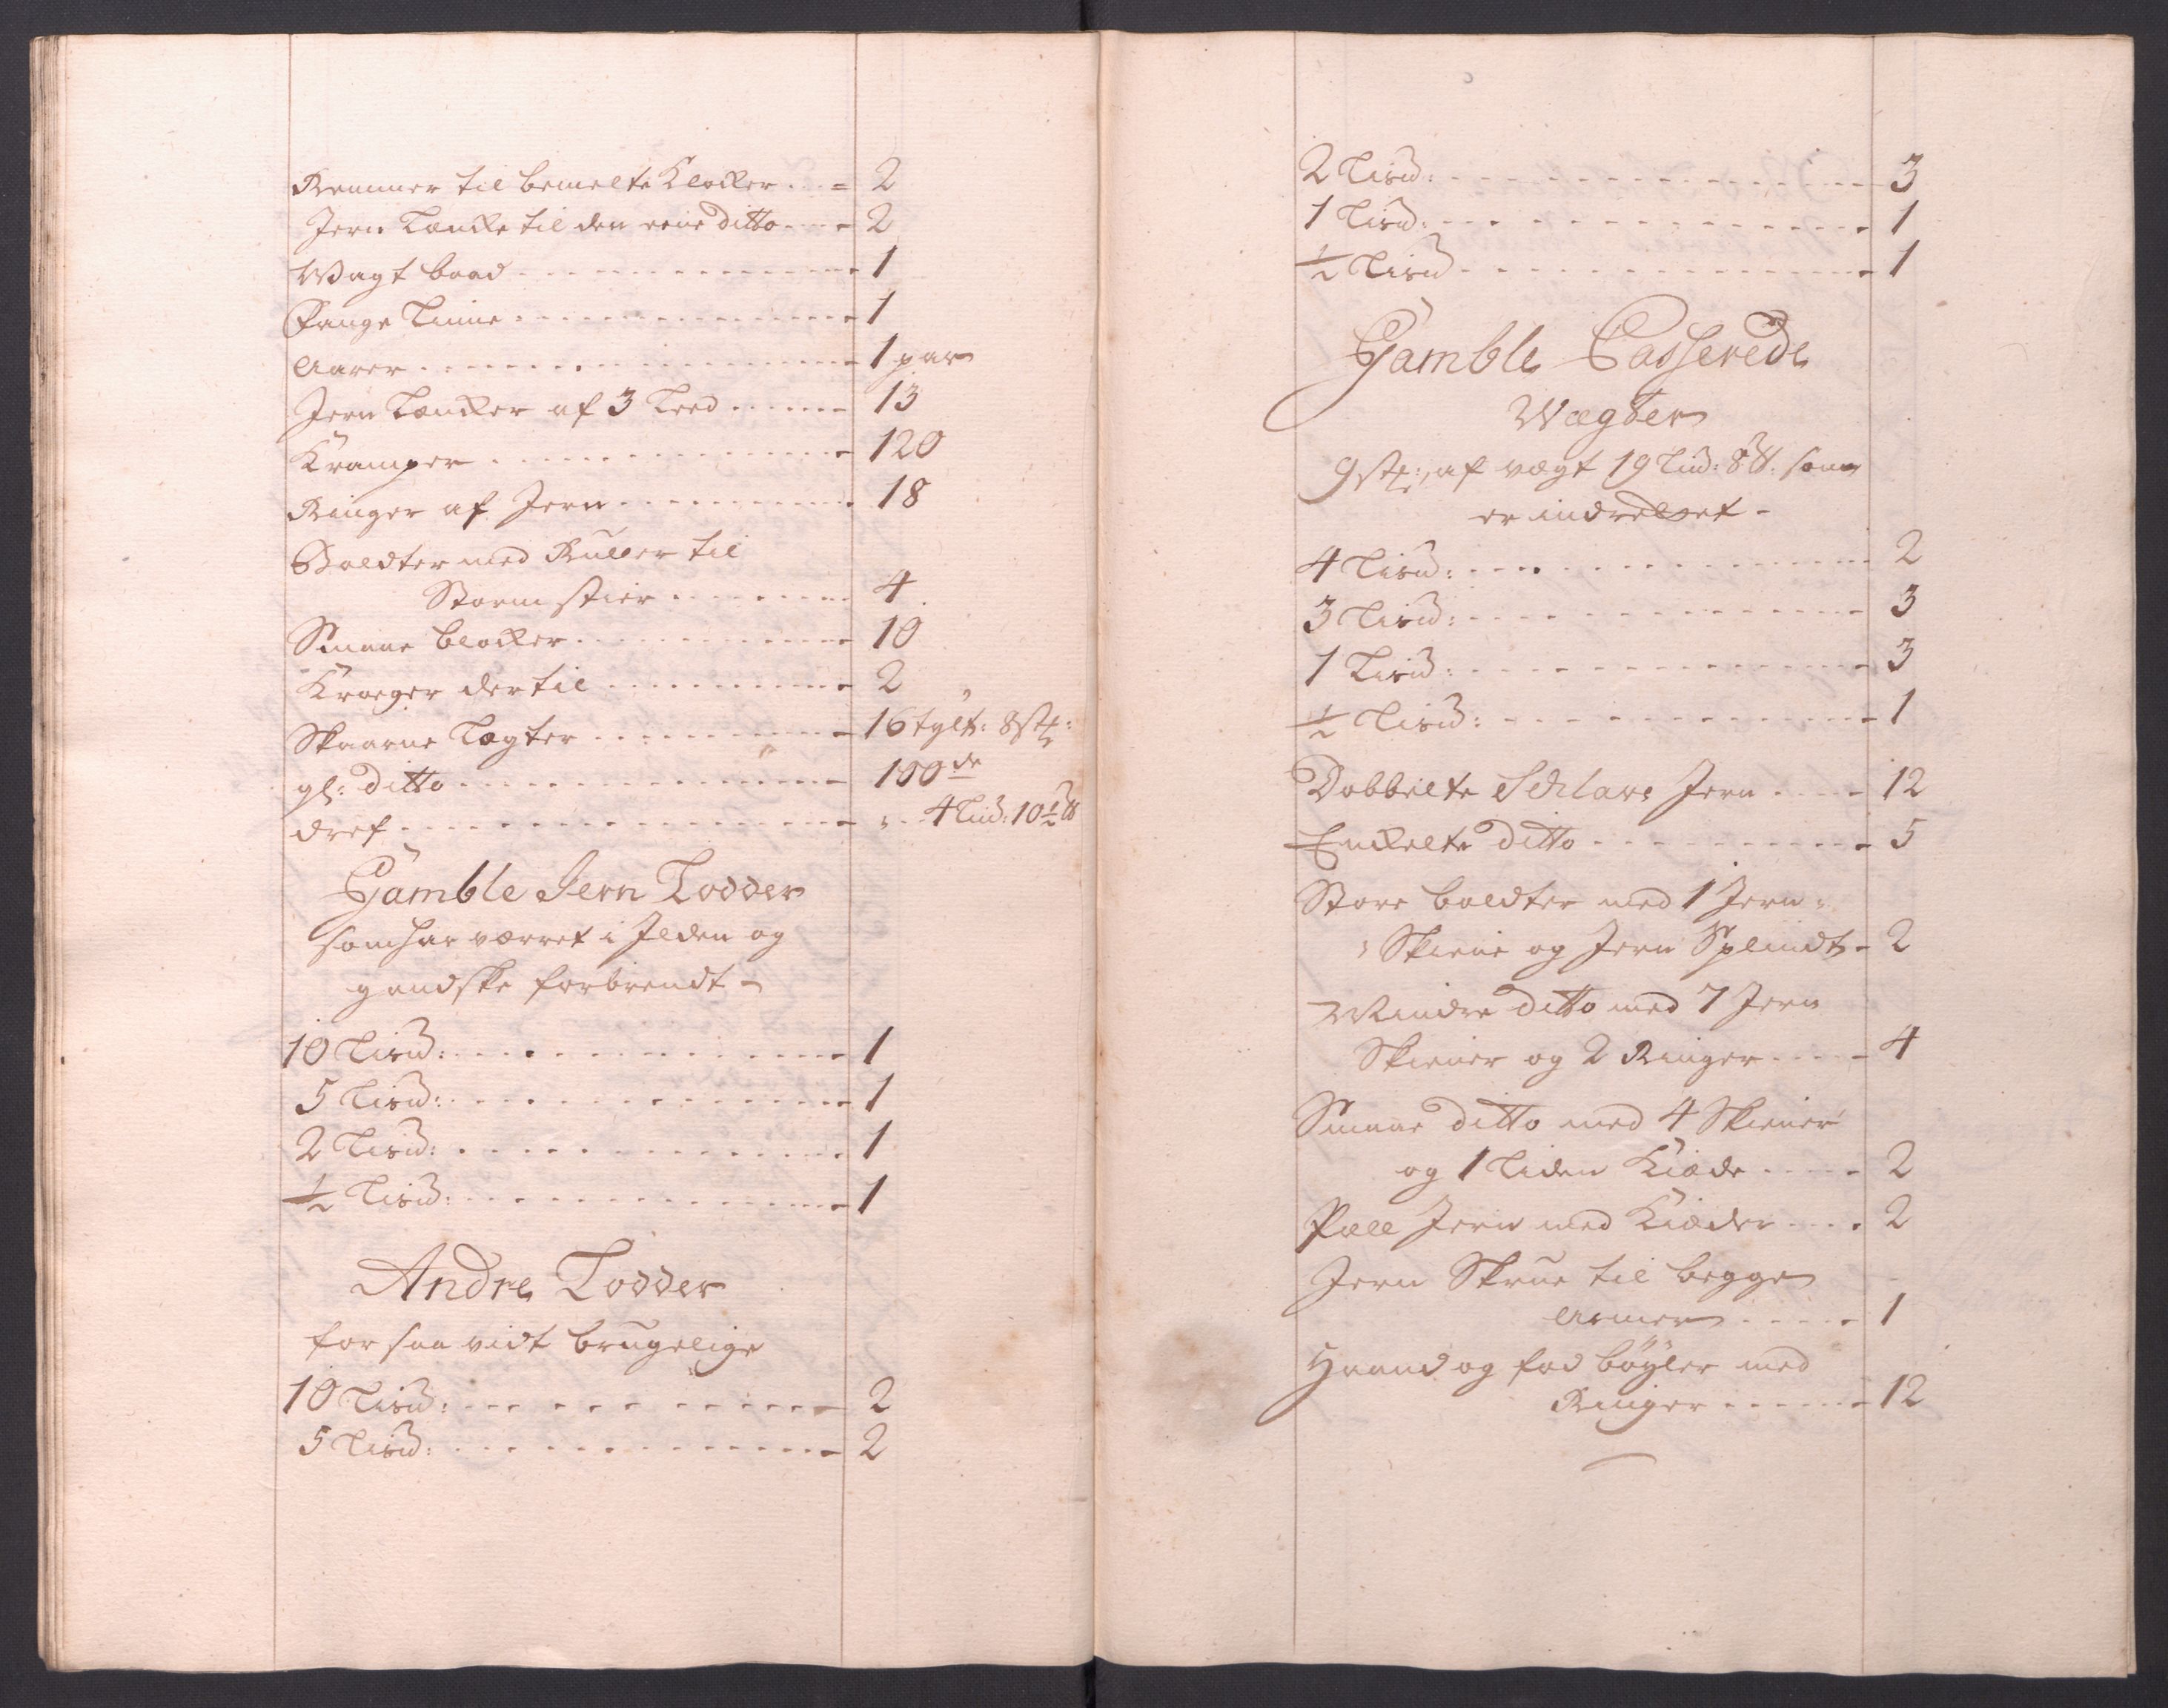 Remmer til bemelte Klocker - - - 2
Jern Læncke til den eene ditto - - - 2
Wagt baad - - - 1
Fange Linne - - - 1
Aarer - - - 1 par
Jern Læncker af 3 Leed - - - 13
Kramper - - - 120
Ringer af Jern - - - 18
Boldter med Ruller til
Storm stier - - - 4
Smaae blocker - - - 10
Kroeger dertil - - - 2
Skaarne Lægter - - - 16 tylt: 8 stk:
gl: ditto - - - 100de
dref - - - 4 Lind: 10½ ℔
Gamble Jern Lodder
som har værret i Ilden og
gandske forbrendt -
10 Lisd: - - - 1
5 Lisd: - - - 1
2 Lisd: - - - 1
½ Lisd: - - - 1
Andre Lodder
for saa vidt brugelige
10 Lisd: - - - 2
5 Lisd: - - - 2
2 Lisd: - - - 3
1 Lisd: - - - 1
½ Lisd - - - 1
Gamble Casserede
Wægter
9 stk:, af vægt 19 Lisd: 8 ℔: som
er
4 Lisd: - - - 2
3 Lisd: - - - 3
1 Lisd: - - - 3
½ Lisd: - - - 1
Dobbelte Schlave Jern - - - 12
Enckelte ditto - - - 5
Store boldter med 1 Jern
Skiene og Jern Splindt - 2
Mindre ditto med 7 Jern
Skiener og 2 Ringer - - - 4
Smaae ditto med 4 Skiener
og 1 liden Kiæde - - - 2
Jern med Kiæder - - - 2
Jern Skrue til begge
Armer - - - 1
Haand og fod bøyler med
Ringer - - - 12